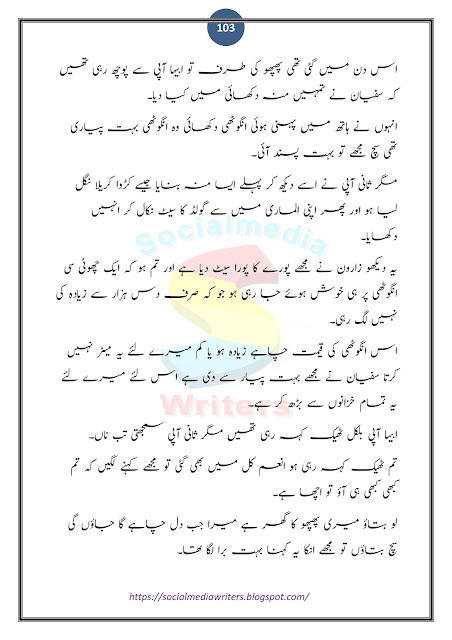 103
اس دن میں گئی تھی پھپھو کی طرف تو ایہا آپی سے پوچھ رہی تھیں
کہ سفیان نے تمہیں منہ دکھائی میں کیا دیا۔
انہوں نے ہاتھ میں پہنی ہوئی انگوٹھی دکھائی وہ انگوٹھی بہت پیاری
تھی سچ مجھے تو بہت پسند آئی۔
مگر ثانی آپی نے اسے دیکھ کر پہلے ایسا منہ بنایا جیسے کڑوا کریلا نگل
لیا ہو اور پھر اپنی الماری میں سے گولڈ کا سیٹ نکال کر انہیں
دکھایا۔
یہ دیکھو زارون نے مجھے پورے کا پورا سیٹ دیا ہے اور تم ہو کہ ایک چھوٹی سی
انگوٹھی پر ہی خوش ہوئے جا رہی ہو جو کہ صرف دس ہزار سے زیادہ کی
نہیں لگ رہی۔
اس انگوٹھی کی قیمت چاہے زیادہ ہو یا کم میرے لئے یہ میٹر نہیں
کرتا سفیان نے مجھے بہت پیار سے دی ہے اس لئے میرے لئے
یہ تمام خزانوں سے بڑھ کر ہے۔
ایہا آپی بلکل ٹھیک کہہ رہی تھیں مگر ثانی آپی سمجھتی تب ناں۔
تم ٹھیک کہہ رہی ہو انعم کل میں بھی گئی تو مجھے کہنے لگیں کہ تم
کبھی کبھی ہی آؤ تو اچھا ہے۔
لو بتاؤ میری پھپھو کا گھر ہے میرا جب دل چاہے گا جاؤں گی
سچ بتاؤں تو مجھے انکا یہ کہنا بہت برا لگا تھا۔
Socialmedia
Writers
https://socialmediawriters.blogspot.com/